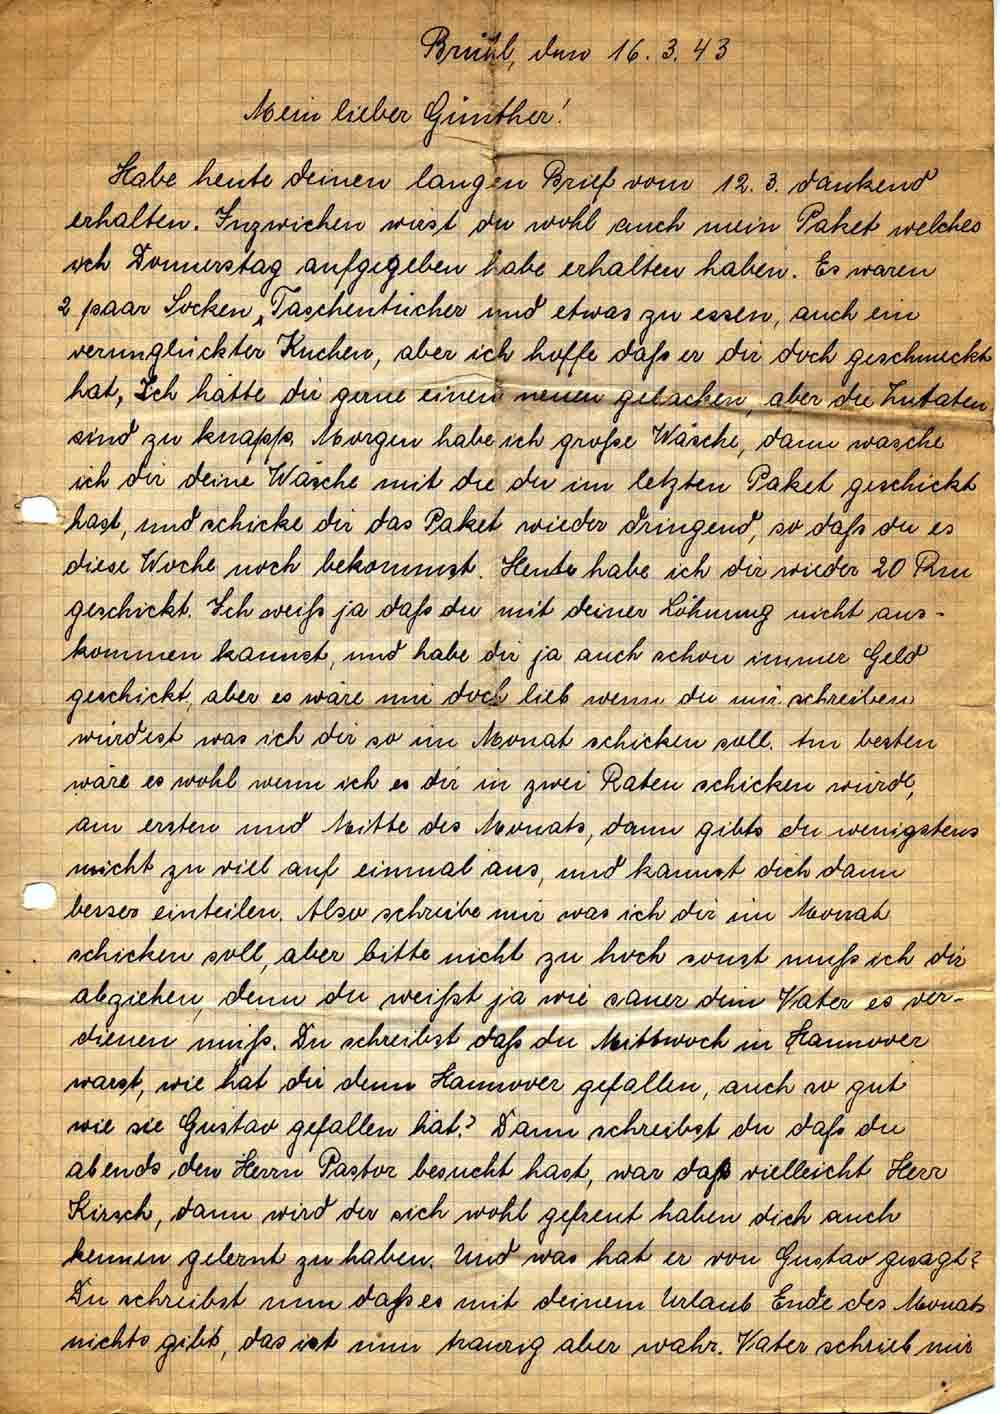 Brühl, den 16.3.43
Mein lieber Günther!
Habe heute deinen langen Brief vom 12.3. dankend
erhalten. Inzwichen wirst du wohl auch mein Paket welches
ich Donnerstag aufgegeben habe erhalten haben. Es waren
2 paar Socken, Taschentücher und etwas zu essen, auch ein
verunglückter Kuchen, aber ich hoffe daß er dir doch geschmeckt
hat, Ich hätte dir gerne einen neuen gebacken, aber die Zutaten
sind zu knapp. Morgen habe ich große Wäsche, dann wasche
ich dir deine Wäsche mit die du im letzten Paket geschickt
hast, und schicke dir das Paket wieder dringend, so daß du es
diese Woche noch bekommst. Heute habe ich dir wieder 20 Rm
geschickt. Ich weiß ja daß du mit deiner Löhnung nicht aus-
kommen kannst, und habe dir ja auch schon immer Geld
geschickt, aber es wäre mir doch lieb wenn du mir schreiben
würdest was ich dir so im Monat schicken soll. Am besten
wäre es wohl wenn ich es dir in zwei Raten schicken würde,
am ersten und Mitte des Monats, dann gibts du wenigstens
nicht zu viel auf einmal aus, und kannst dich dann
besser einteilen. Also schreibe mir was ich dir im Monat
schicken soll, aber bitte nicht zu hoch sonst muß ich dir
abziehen, denn du weißt ja wie sauer dein Vater es ver-
dienen muß. Du schreibst daß du Mittwoch in Hannover
warst, wie hat dir denn Hannover gefallen, auch so gut
wie sie Gustav gefallen hat? Dann schreibst du daß du
abends den Herrn Pastor besucht hast, war daß vielleicht Herr
Kirsch, dann wird der sich wohl gefreut haben dich auch
kennen gelernt zu haben. Und was hat er von Gustav gesagt?
Du schreibst nun daß es mit deinem Urlaub Ende des Monats
nichts gibt, das ist nun traurig aber wahr. Vater schrieb mir